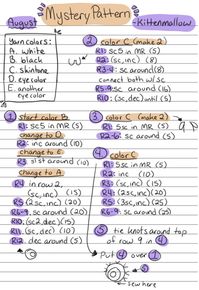 August
Mystery Pattern
-Kittenmallow
Yarn colors:
A. white
B. black
C. skintone
D. eyecolor
E. another
eye color
② color C (make 2)
R1: sc5 in MR (5)
R2: (sc,inc) (8)
R3-4: sc around(8)
connect both w/ sc
R5-9: sc around (16)
R10: (sc,dec) until (5)
① Start color B
R1: sc5 in MR (5)
change to D
R2: inc around (10)
change to E
R3: sl st around (10)
change to A
R4 in row 2,
(sc,inc) (15)
R5 (2sc,inc) (20)
R6-9: sc around (20)
R10: (sc2,dec)(15)
R11: (sc,dec) (10)
R12: dec around (5)
③ color C (make 2)
R1: 5sc in MR (5)
R2-6: sc around (5)
④ color C
R1: 5sc in MR (5)
R2: inc (10)
R3: (sc,inc) (15)
R4: (2sc,inc) (20)
R5: (3sc,inc) (25)
R6-9: sc around (25)
⑤ tie knots around
top of row 9 in ④
Put ④ over ①
⑤
sew here